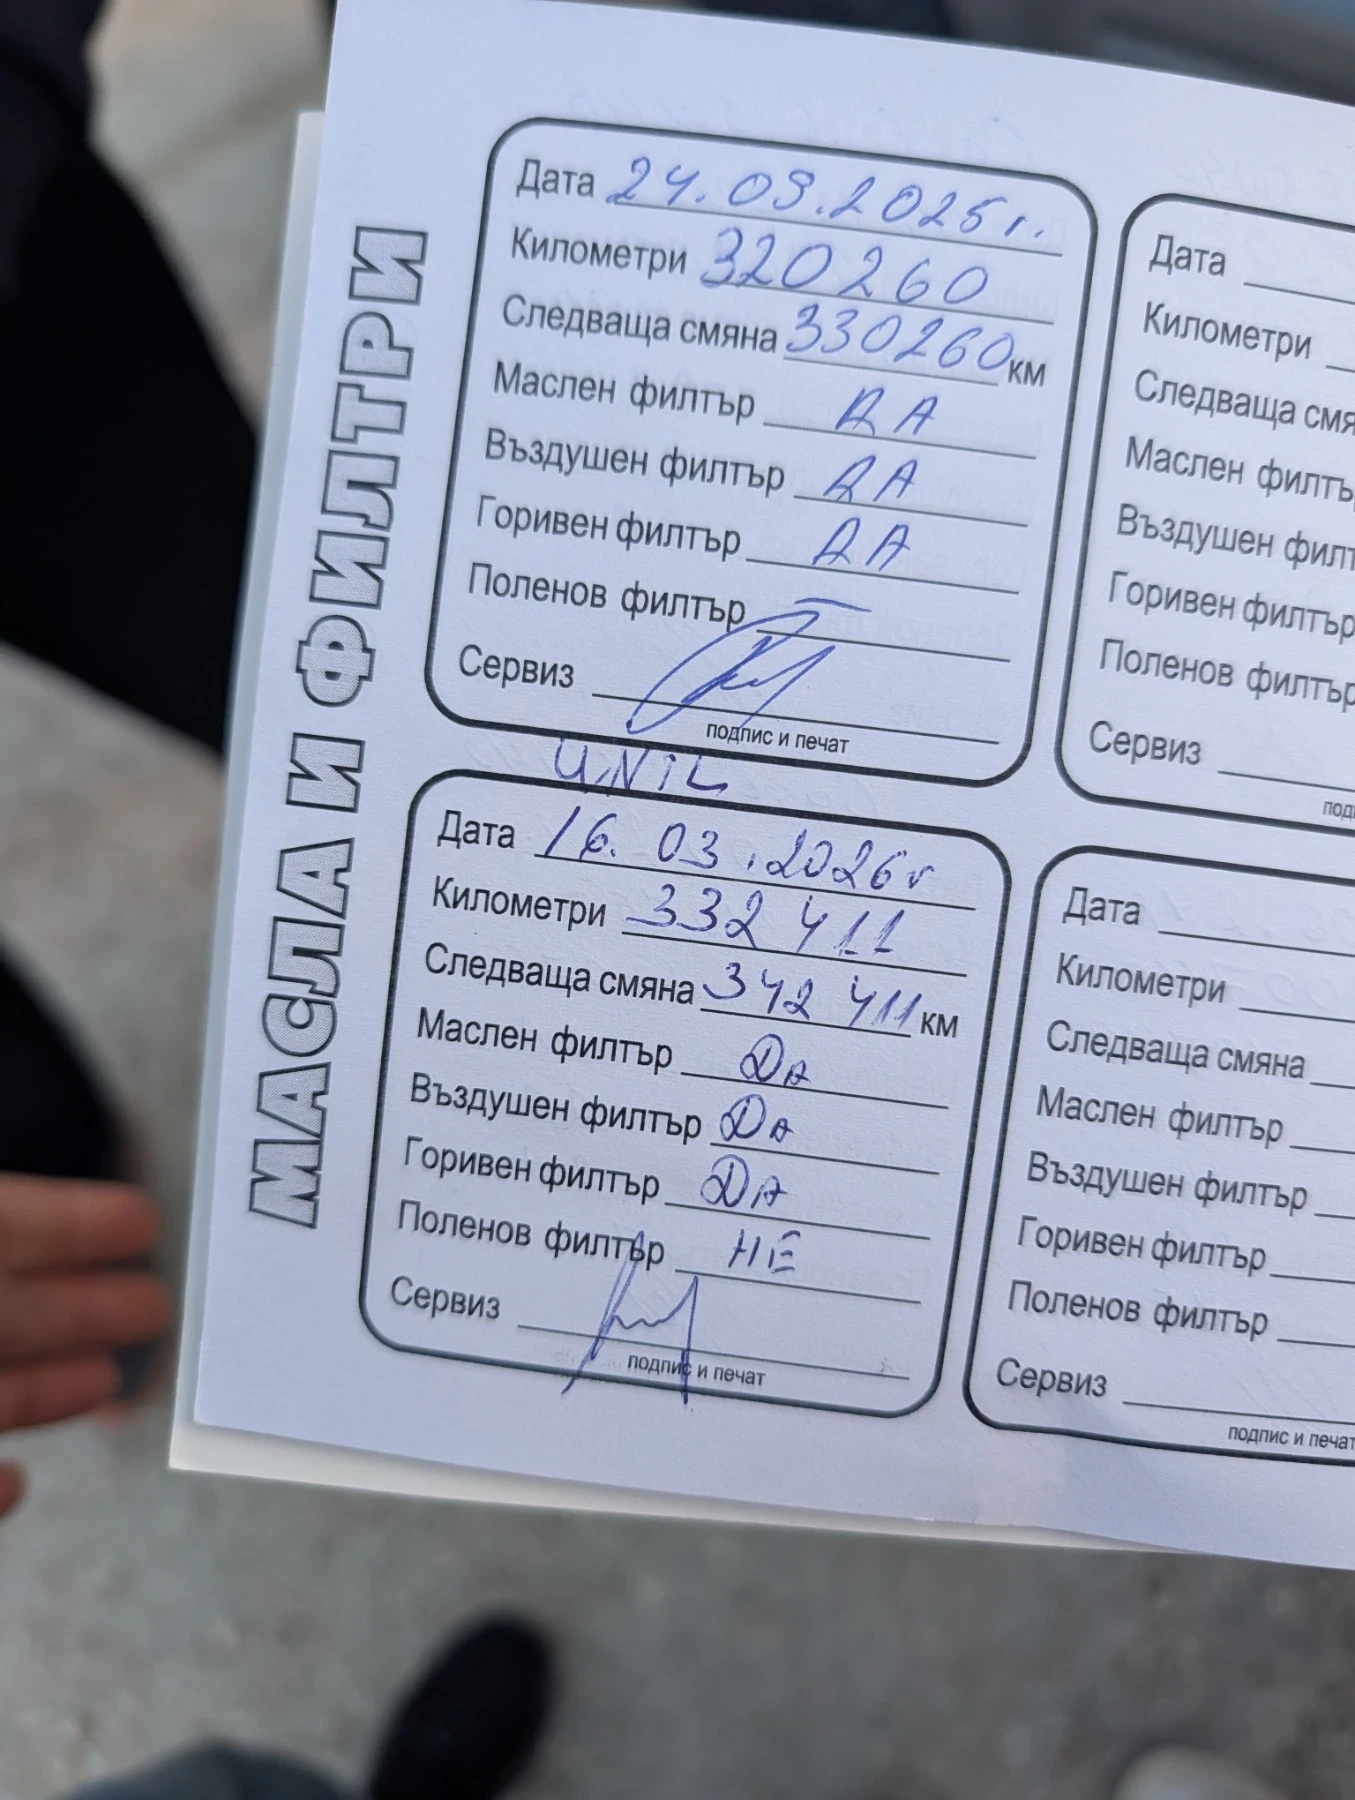 МАСЛА И ФИЛТРИ
Дата 24.09.2025г.
Километри 320260
Следваща смяна 330260 км
Маслен филтър ДА
Въздушен филтър ДА
Горивен филтър ДА
Поленов филтър —
Сервиз
подпис и печат
UNIL
Дата 16.03.2026г
Километри 332 411
Следваща смяна 342 411 км
Маслен филтър ДА
Въздушен филтър ДА
Горивен филтър ДА
Поленов филтър НЕ
Сервиз
подпис и печат
Дата
Километри
Следваща смя
Маслен филтъ
Въздушен филт
Горивен филтър
Поленов филтър
Сервиз
под
Дата
Километри
Следваща смяна
Маслен филтър
Въздушен филтър
Горивен филтър
Поленов филтър
Сервиз
подпис и печат